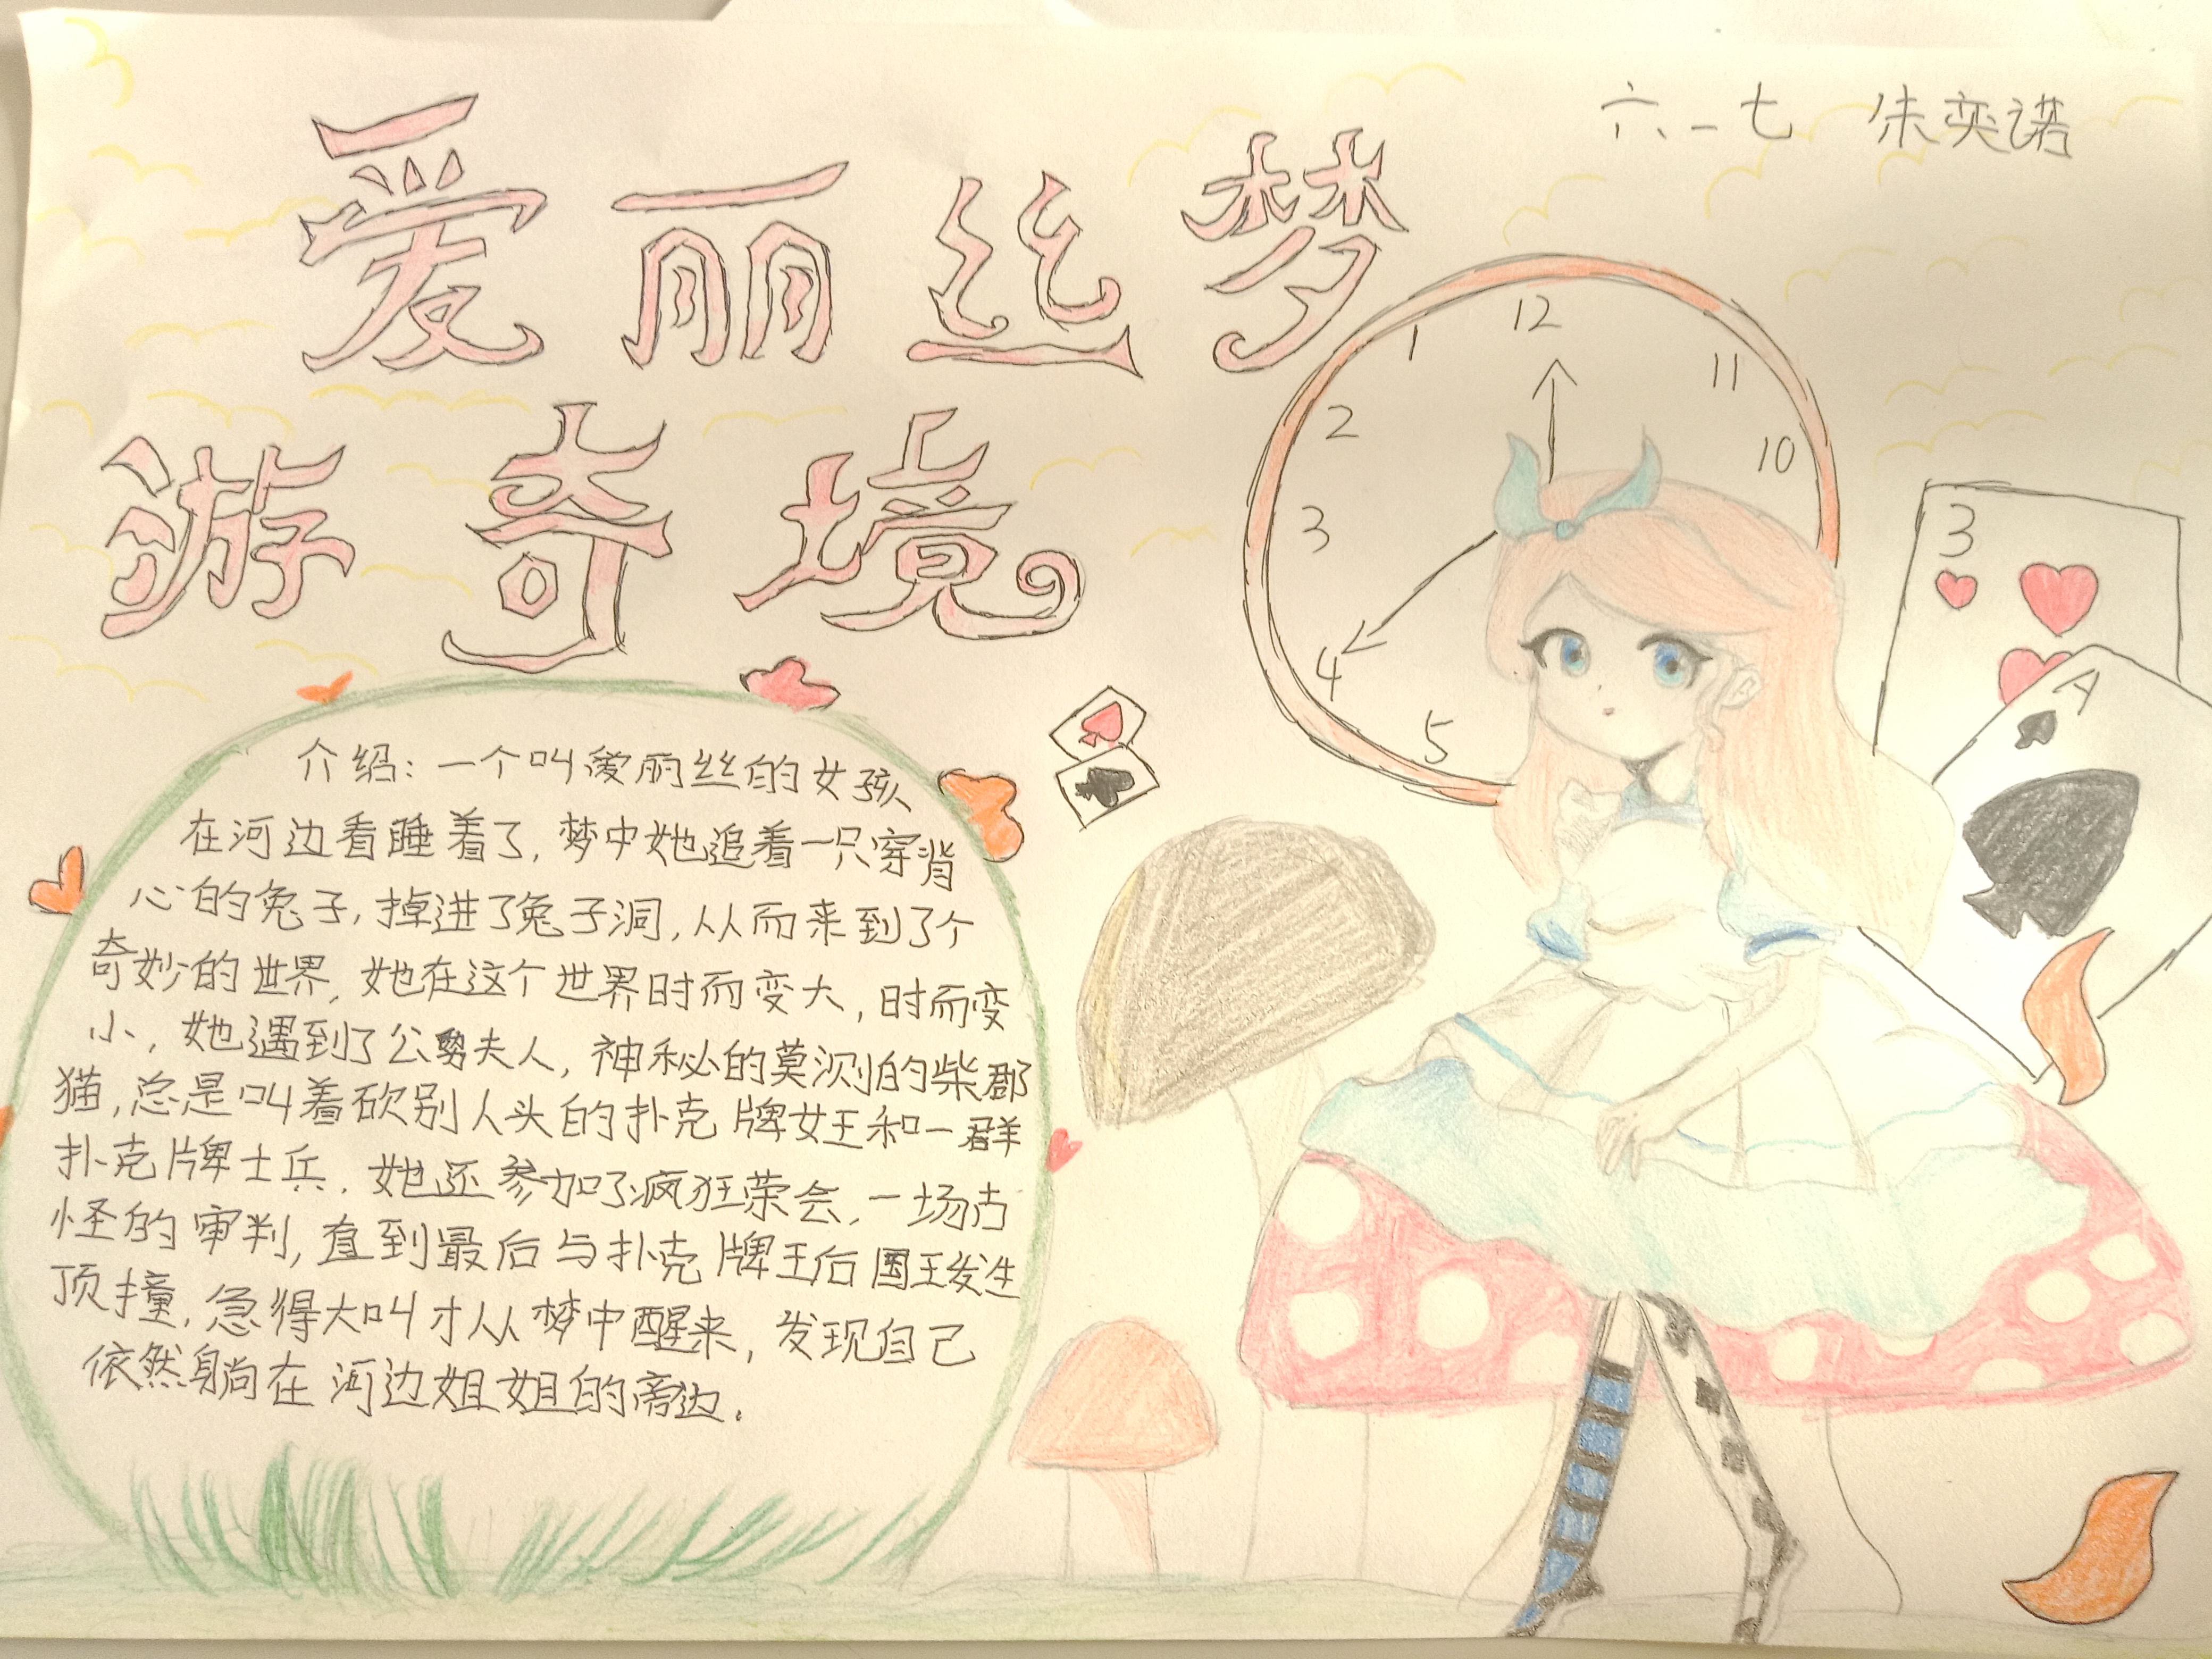 六_七 朱奕诺
爱丽丝梦
游奇境
12
1
11
2
10
3
4
5
3
A
介绍：一个叫爱丽丝的女孩
在河边看睡着了，梦中她追着一只穿背
心的兔子，掉进了兔子洞，从而来到了个
奇妙的世界，她在这个世界时而变大，时而变
小，她遇到了公爵夫人，神秘的莫测的柴郡
猫，总是叫着砍别人头的扑克牌女王和一群
扑克牌士兵．她还参加了疯狂茶会，一场古
怪的审判，直到最后与扑克牌王后国王发生
顶撞，急得大叫才从梦中醒来，发现自己
依然躺在河边姐姐的旁边．